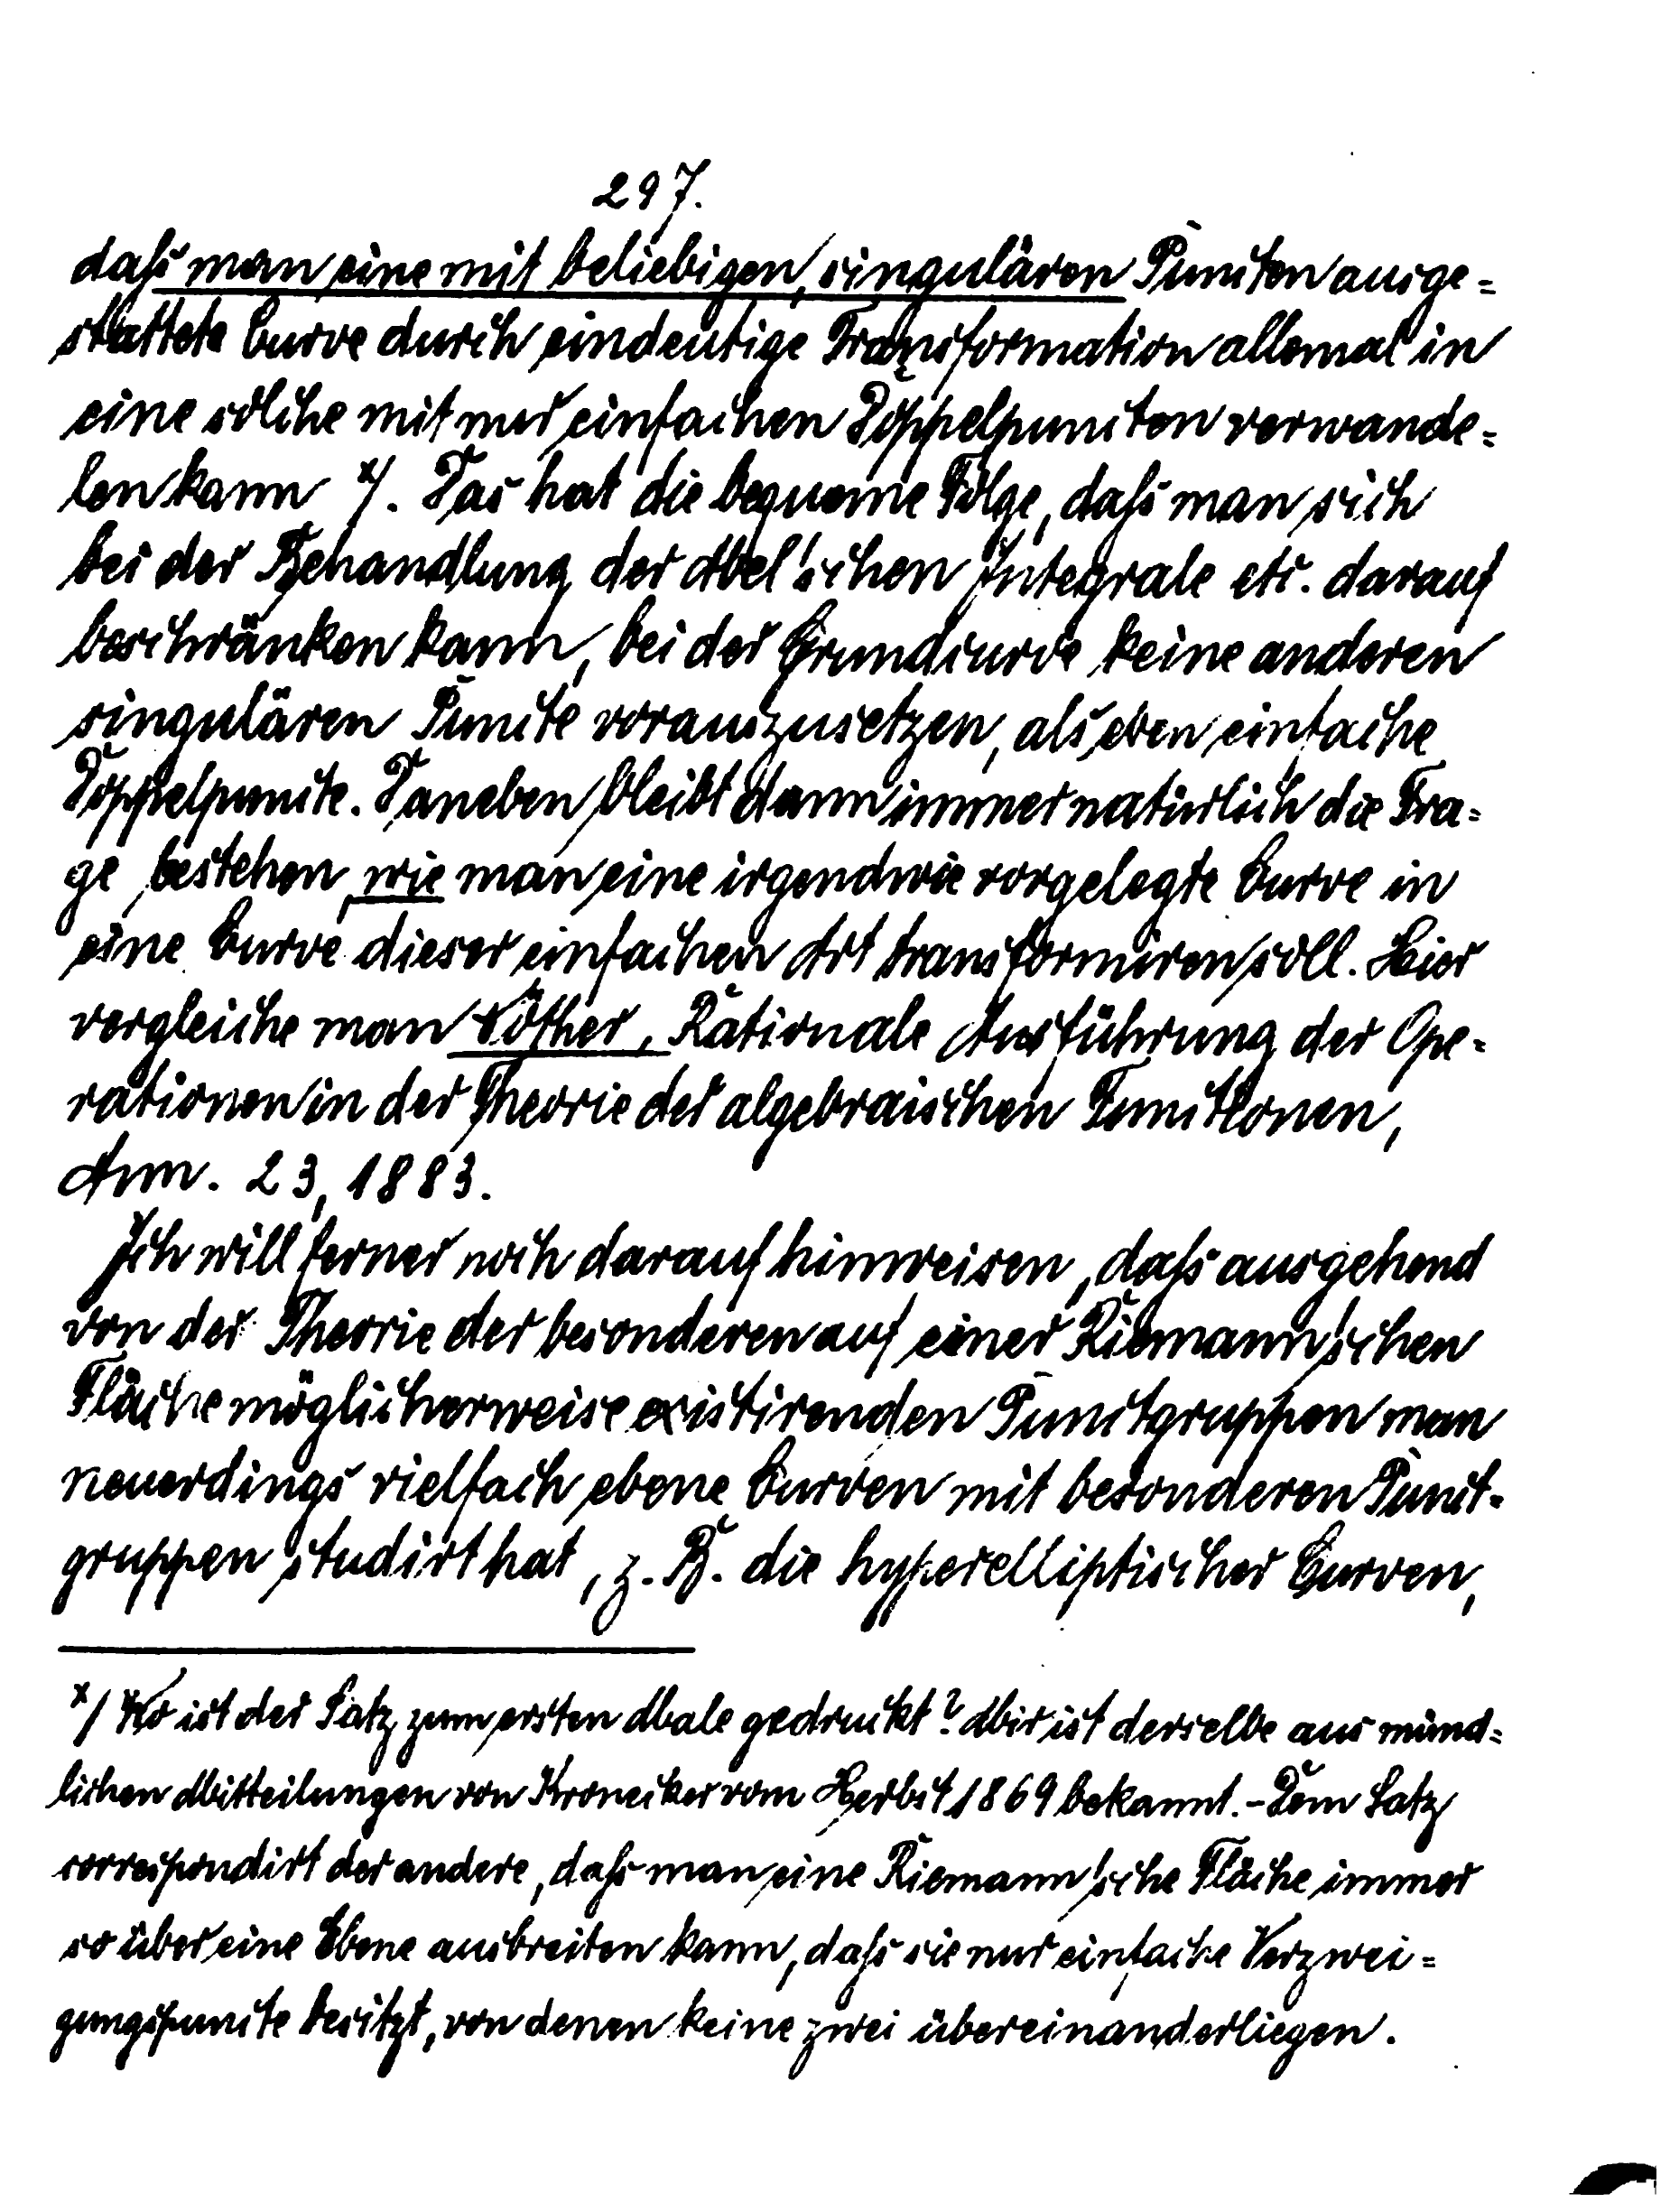 297.
daſs man eine mit beliebigen, singulären Puncten ausge=
stattete Curve durch eindeutige Transformation allemal in
eine solche mit nur einfachen Doppelpuncten verwande=
len kann x). Das hat die bequeme Folge, daſs man sich
bei der Behandlung der Abel'schen Integrale etc. darauf
beschränken kann, bei der Grundcurve keine anderen
singulären Puncte vorauszusetzen, als eben einfache
Doppelpuncte. Daneben bleibt dann immer natürlich die Fra=
ge bestehen, wie man eine irgendwie vorgelegte Curve in
eine Curve dieser einfachen Art transformiren soll. Hier
vergleiche man Nöther, Rationale Ausführung der Ope=
rationen in der Theorie der algebraischen Functionen,
Ann. 23, 1883.
Ich will ferner noch darauf hinweisen, daſs ausgehend
von der Theorie der besonderen auf einer Riemann'schen
Fläche möglicherweise existirenden Punctgruppen man
neuerdings vielfach ebene Curven mit besonderen Punct-
gruppen studirt hat, z. B. die hyperelliptischer Curven,
x) Wo ist der Satz zum ersten Male gedruckt? Mir ist derselbe aus münd=
lichen Mitteilungen von Kronecker vom Herbst 1869 bekannt. - Dem Satz
correspondirt der andere, daſs man eine Riemann'sche Fläche immer
so über eine Ebene ausbreiten kann, daſs sie nur einfache Verzwei=
gungspuncte besitzt, von denen keine zwei übereinanderliegen.